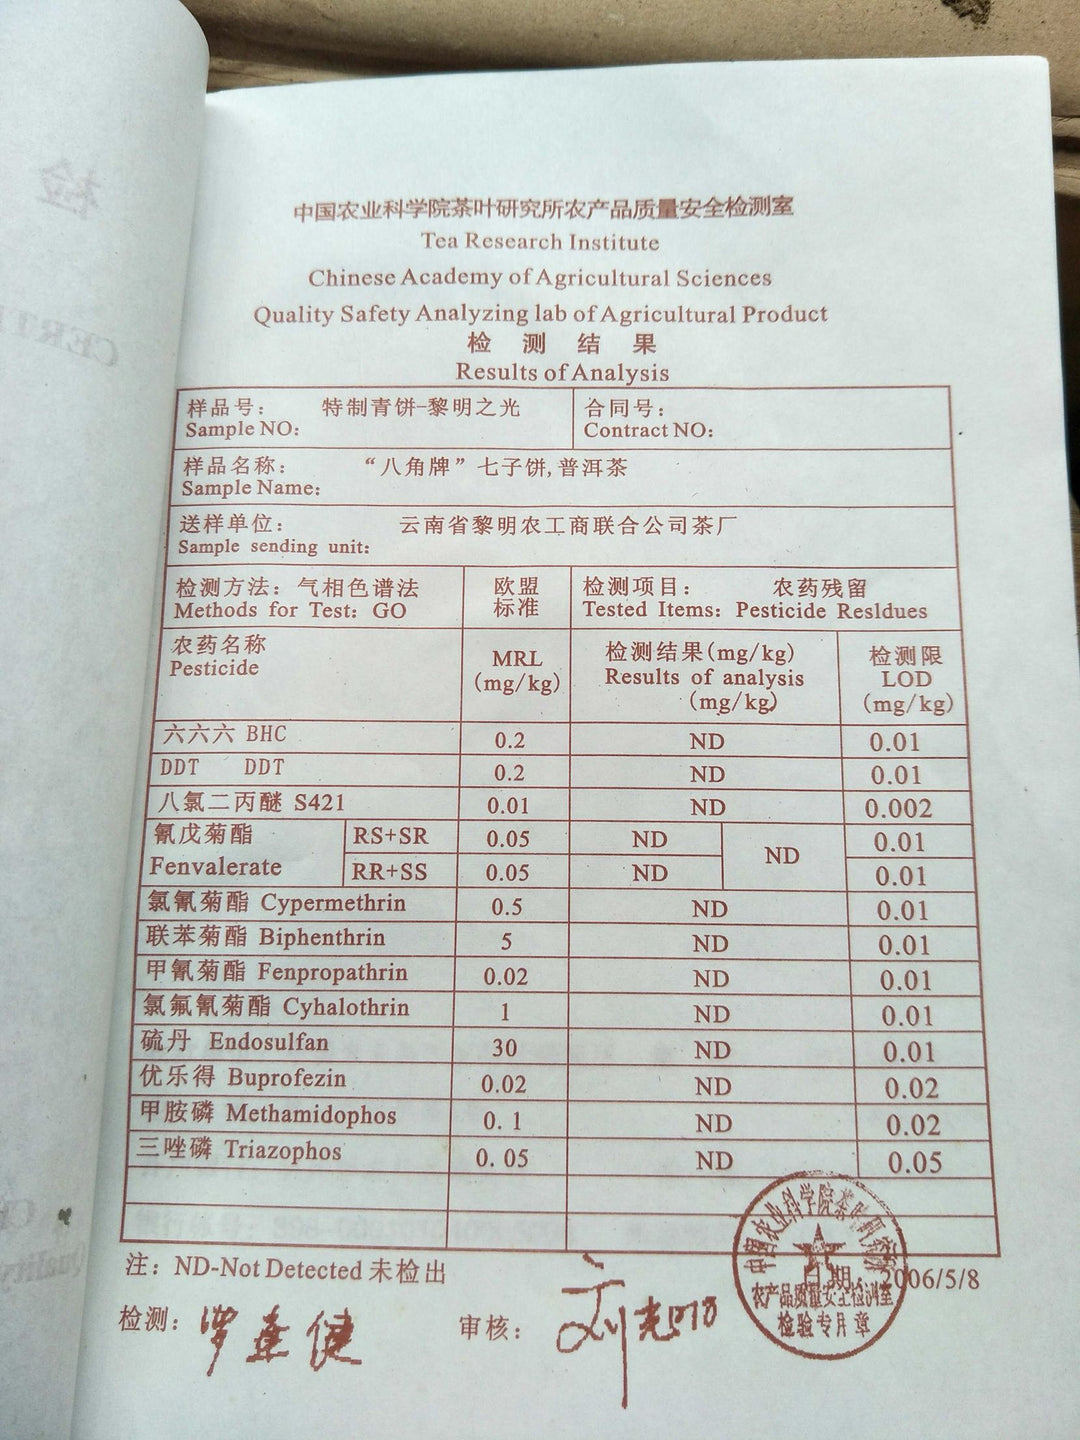 中国农业科学院茶叶研究所农产品质量安全检测室
Tea Research Institute
Chinese Academy of Agricultural Sciences
Quality Safety Analyzing lab of Agricultural Product
检 测 结 果
Results of Analysis
样品号： 特制青饼-黎明之光 合同号：
Sample NO： Contract NO：
样品名称： “八角牌”七子饼,普洱茶
Sample Name：
送样单位： 云南省黎明农工商联合公司茶厂
Sample sending unit：
检测方法：气相色谱法 欧盟 检测项目： 农药残留
Methods for Test：GO 标准 Tested Items：Pesticide Resldues
农药名称 MRL 检测结果(mg/kg) 检测限
Pesticide (mg/kg) Results of analysis LOD
(mg/kg) (mg/kg)
六六六 BHC 0.2 ND 0.01
DDT DDT 0.2 ND 0.01
八氯二丙醚 S421 0.01 ND 0.002
氰戊菊酯 RS+SR 0.05 ND ND 0.01
Fenvalerate RR+SS 0.05 ND 0.01
氯氰菊酯 Cypermethrin 0.5 ND 0.01
联苯菊酯 Biphenthrin 5 ND 0.01
甲氰菊酯 Fenpropathrin 0.02 ND 0.01
氯氟氰菊酯 Cyhalothrin 1 ND 0.01
硫丹 Endosulfan 30 ND 0.01
优乐得 Buprofezin 0.02 ND 0.02
甲胺磷 Methamidophos 0. 1 ND 0.02
三唑磷 Triazophos 0. 05 ND 0.05
注：ND-Not Detected 未检出
日期：2006/5/8
检测： 审核：
中国农业科学院茶叶研究所
农产品质量安全检测室
检验专用章